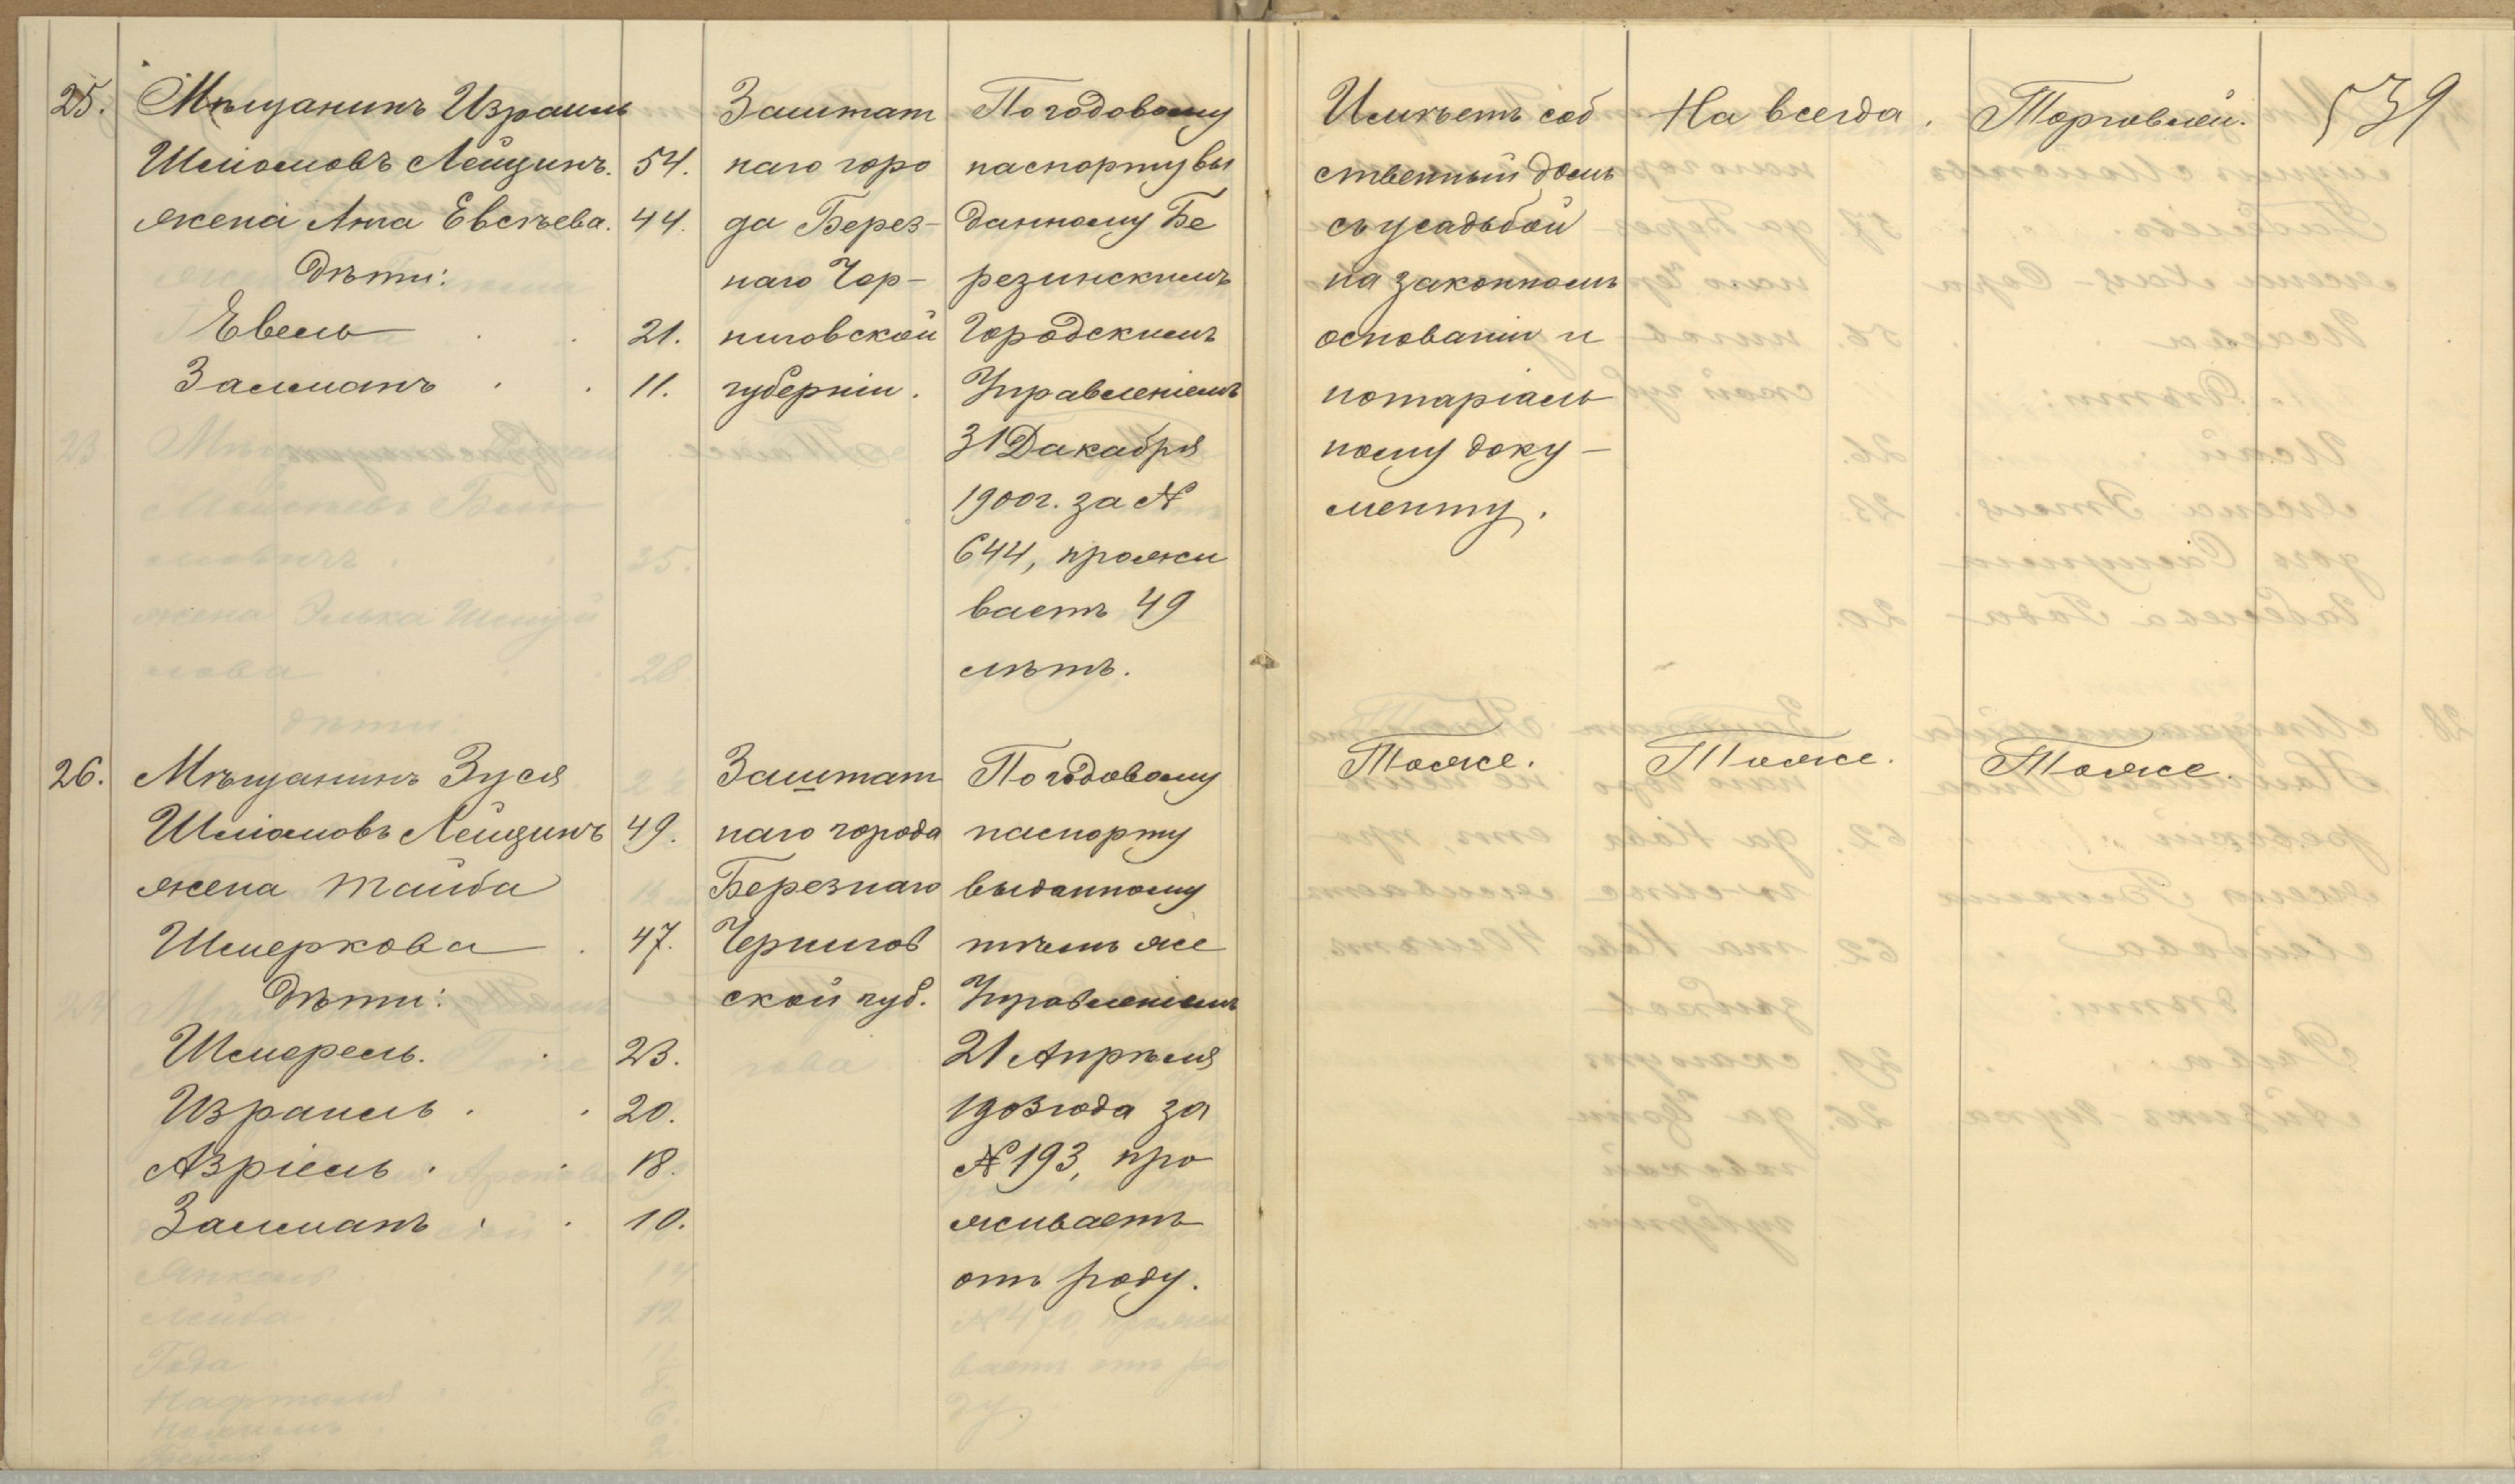 539
25.
Мѣщанинъ Израиль
Шліомовъ Лейщинъ. 54.
жена Ата Евсѣева. 44.
Дѣти:
Евель 21.
Залманъ 11.
Заштат
наго горо
да Берез-
наго Чер-
ниговской
губерніи.
По годовому
паспорту вы
данному Бе
резинскимъ
Городскимъ
Управленіемъ
31 Дакабря
1900г. за №
644, прожи
ваетъ 49
лѣтъ.
Имѣетъ соб
ственный домъ
съ усадьбой
на законномъ
основаніи и
нотаріаль
ному доку-
менту.
На всегда.
Торговлей.
26.
Мѣщанинъ Зуся
Шліомовъ Лейщинъ 49.
жена Тайба
Шмеркова 47.
Дѣти:
Шмерель. 23.
Израиль 20.
Азріель 18.
Залманъ 10.
Заштат
наго города
Березнаго
Чернигов
ской губ.
По годовому
паспорту
выданному
тѣмъ же
Управленіемъ
21 Апрѣля
1903 года за
№ 193, про
живаетъ
отъ роду.
Тоже.
Тоже.
Тоже.